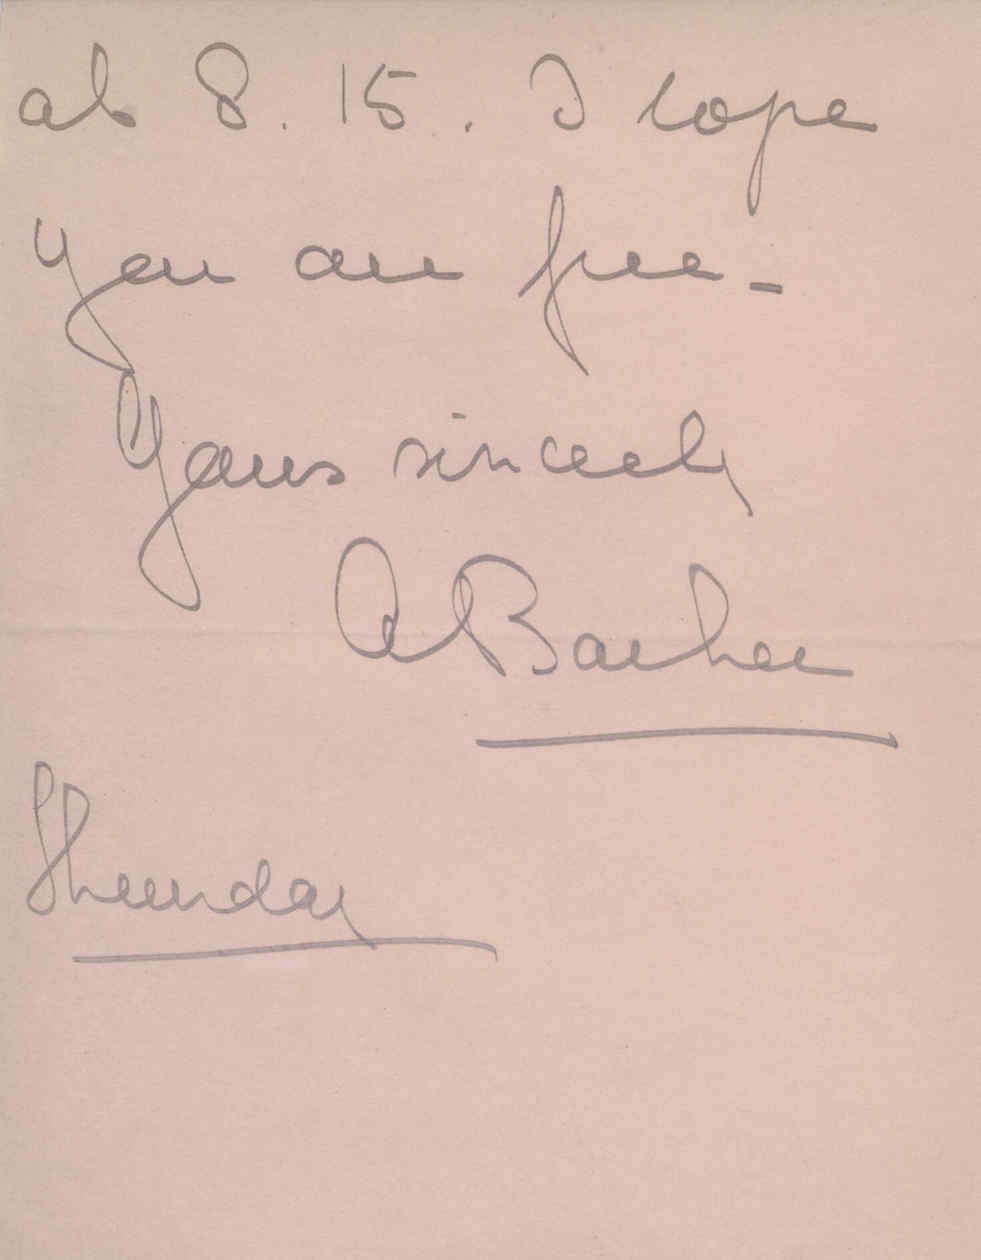 at 8.15. I hope
you are free -
Yours sincerely
A Barker
Thursday